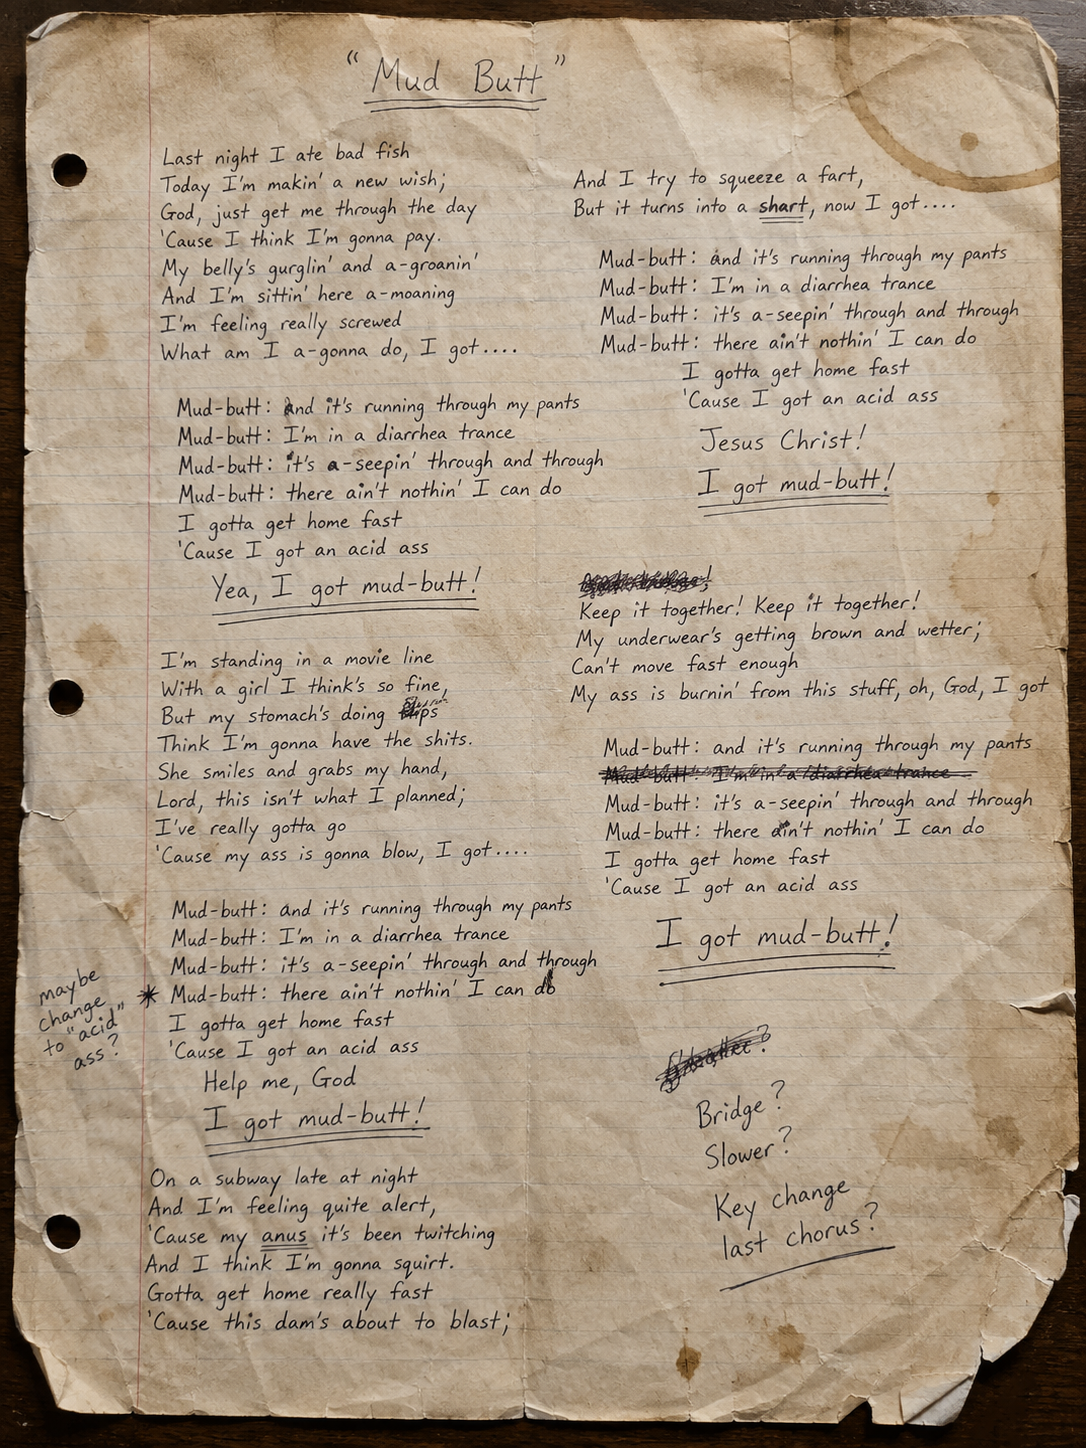 "Mud Butt"
Last night I ate bad fish
Today I'm makin' a new wish;
God, just get me through the day
'Cause I think I'm gonna pay.
My belly's gurglin' and a-groanin'
And I'm sittin' here a-moaning
I'm feeling really screwed
What am I a-gonna do, I got....
Mud-butt: and it's running through my pants
Mud-butt: I'm in a diarrhea trance
Mud-butt: it's a-seepin' through and through
Mud-butt: there ain't nothin' I can do
I gotta get home fast
'Cause I got an acid ass
Yea, I got mud-butt!
I'm standing in a movie line
With a girl I think's so fine,
But my stomach's doing flips
Think I'm gonna have the shits.
She smiles and grabs my hand,
Lord, this isn't what I planned;
I've really gotta go
'Cause my ass is gonna blow, I got....
Mud-butt: and it's running through my pants
Mud-butt: I'm in a diarrhea trance
Mud-butt: it's a-seepin' through and through
maybe
change
to "acid"
ass?
Mud-butt: there ain't nothin' I can do
I gotta get home fast
'Cause I got an acid ass
Help me, God
I got mud-butt!
On a subway late at night
And I'm feeling quite alert,
'Cause my anus it's been twitching
And I think I'm gonna squirt.
Gotta get home really fast
'Cause this dam's about to blast;
And I try to squeeze a fart,
But it turns into a shart, now I got....
Mud-butt: and it's running through my pants
Mud-butt: I'm in a diarrhea trance
Mud-butt: it's a-seepin' through and through
Mud-butt: there ain't nothin' I can do
I gotta get home fast
'Cause I got an acid ass
Jesus Christ!
I got mud-butt!
Keep it together! Keep it together!
My underwear's getting brown and wetter;
Can't move fast enough
My ass is burnin' from this stuff, oh, God, I got
Mud-butt: and it's running through my pants
Mud-butt: I'm in a diarrhea trance
Mud-butt: it's a-seepin' through and through
Mud-butt: there ain't nothin' I can do
I gotta get home fast
'Cause I got an acid ass
I got mud-butt!
Bridge?
Slower?
Key change
last chorus?